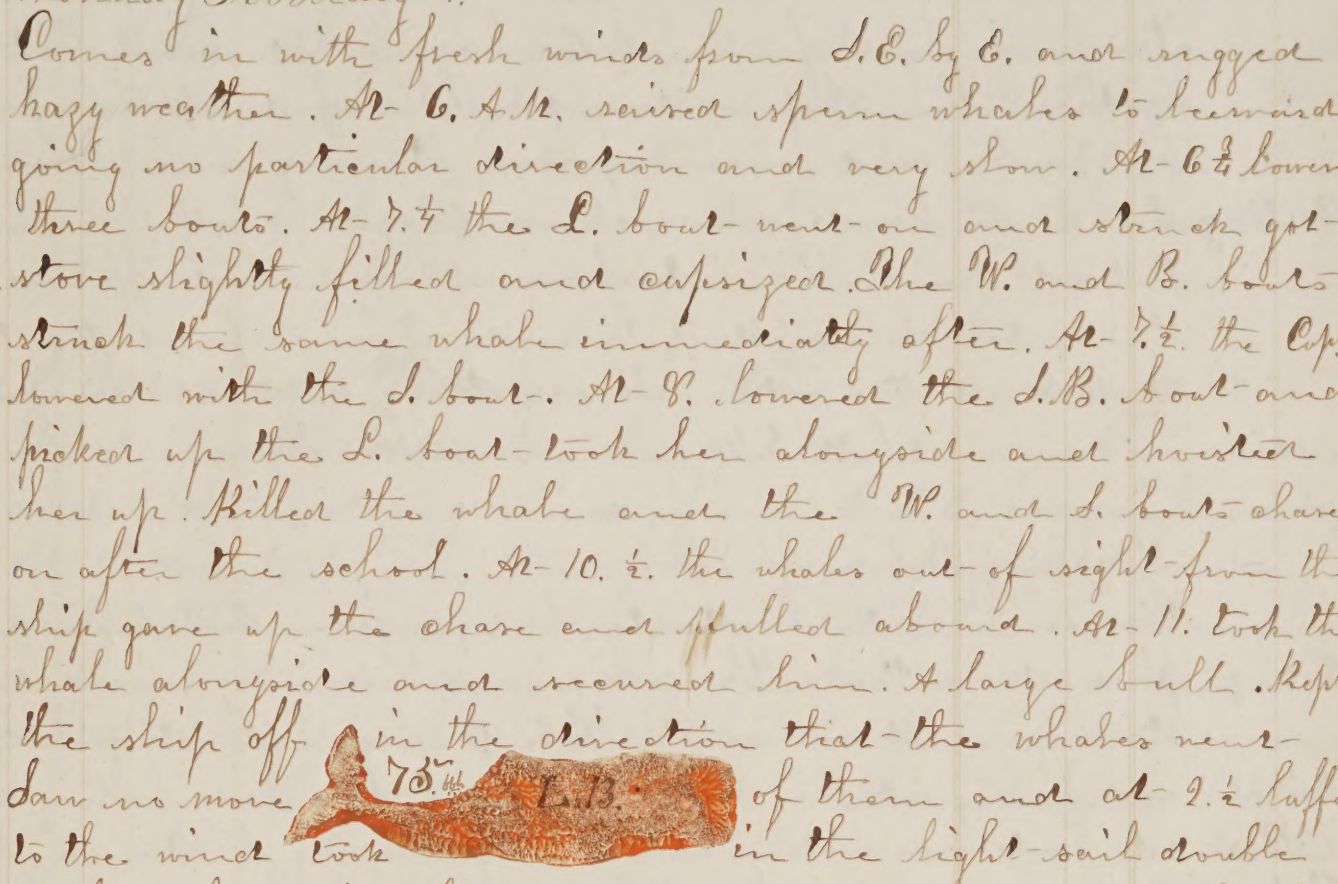 Comes in with fresh winds from S.E. by E. and rugged
hazy weather. At 6. A.M. raised sperm whales to leeward
going no particular direction and very slow. At 6 3/4 lower
three boats. At 7. 1/4 the L. boat went on and struck got
stove slightly filled and capsized. The W. and B. boats
struck the same whale immediatly after. At 7. 1/2. the Cap
lowered with the S. boat. At 8. lowered the S.B. boat and
picked up the L. boat took her alongside and hoisted
her up. Killed the whale and the W. and S. boats chase
on after the school. At 10. 1/2. the whales out of sight from th
ship gave up the chase and pulled aboard. At 11. took th
whale alongside and secured him. A large bull. Kep
the ship off in the direction that the whales went
75 bbl L.B.
Saw no more of them and at 2. 1/2 luff
to the wind took in the light sail double